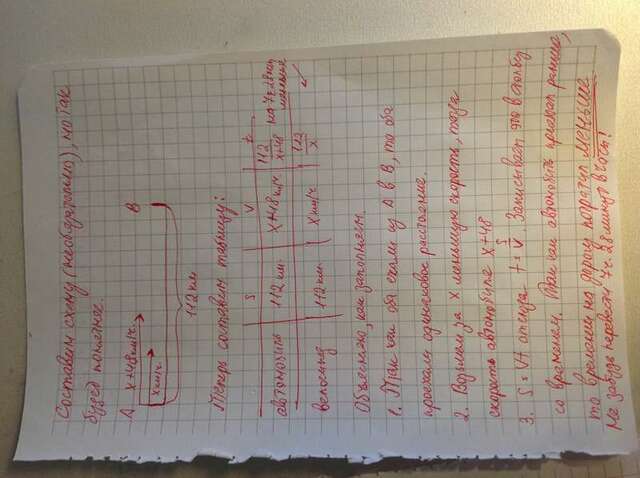 Составим схему (необязательно), но так
будет понятнее.
A x+48км/ч. B
x км/ч.
112 км
Теперь составим таблицу:
S V t
автомобиль 112 км. x+48 км/ч. 112/x+48 на 7ч.28мин меньше
велосипед 112 км. x км/ч. 112/x
Объясняю, как заполняем.
1. Так как оба ехали из А в В, то оба
проехали одинаковое расстояние.
2. Возьмем за x меньшую скорость, тогда
скорость автомобиля x+48
3. S = Vt отсюда t = S/V. Записываем это в столбец
со временем. Так как автомобиль приехал раньше,
то времени на дорогу потратил меньше
Не забудь перевести 7ч. 28 минут в часы!